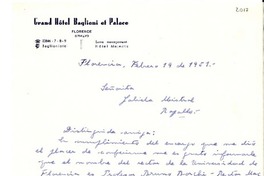 2017
Grand Hôtel Baglioni et Palace
FLORENCE
Same management
Florencia, Febrero 19 de 1951.
Señorita
Gabriela Mistral
Rapallo.
Distinguida amiga:
En cumplimiento del encargo que me dió
el placer de conferirme me es grato informarle
que el nombre del rector de la Universidad de
Florencia es Profesor Bruno Borghi - Rector Mag